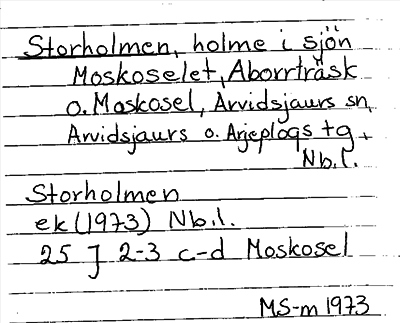 Storholmen, holme i sjön
Moskoselet, Aborrträsk
o. Moskosel, Arvidsjaurs sn,
Arvidsjaurs o. Arjeplogs tg,
Nb.l.
Storholmen
ek (1973) Nb.l.
25 J 2-3 c-d Moskosel
MS-m 1973